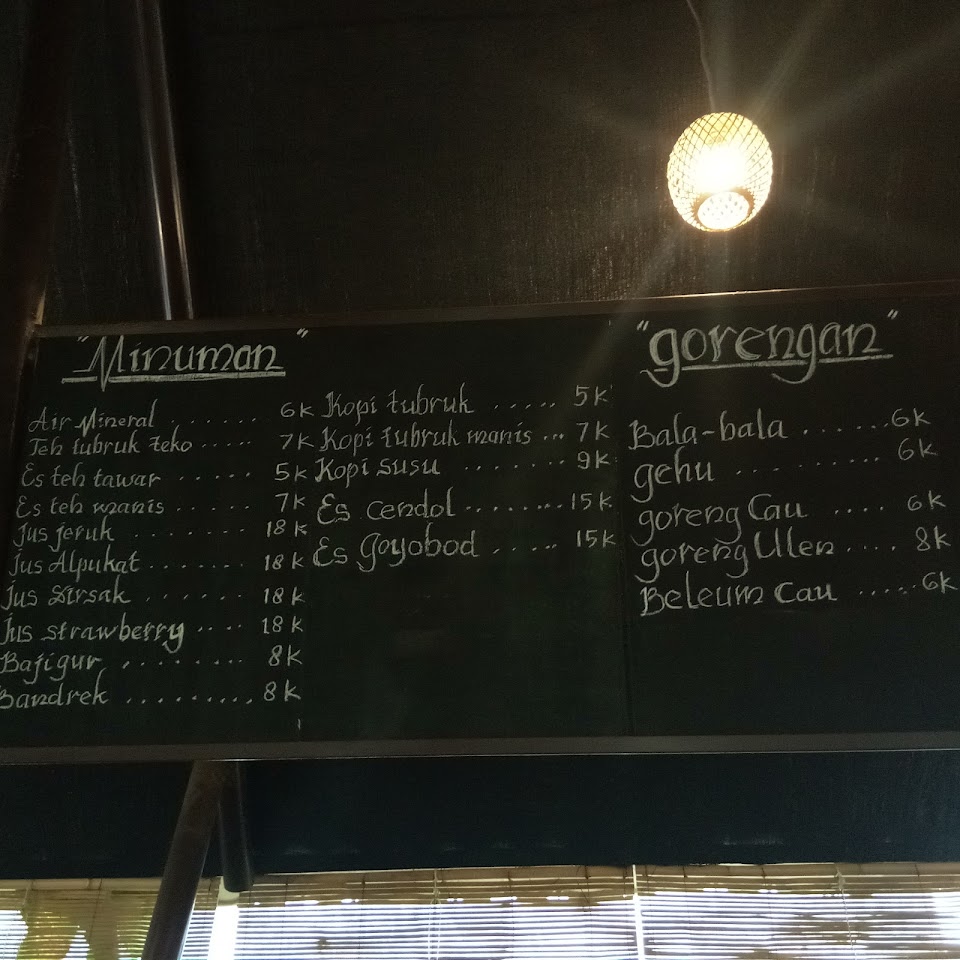 "Minuman"
Air Mineral ...... 6k
Teh tubruk teko ..... 7k
Es teh tawar ...... 5k
Es teh manis ...... 7k
Jus jeruk ....... 18k
Jus Alpukat ....... 18k
Jus Sirsak ...... 18k
Jus strawberry .... 18k
Bajigur ........ 8k
Bandrek ......... 8k
Kopi tubruk ..... 5k
Kopi tubruk manis ... 7k
Kopi susu ....... 9k
Es cendol ........ 15k
Es goyobod ..... 15k
"gorengan"
Bala-bala ...... 6k
gehu ......... 6k
goreng Cau ..... 6k
goreng Ulen .... 8k
Beleum Cau ..... 6k